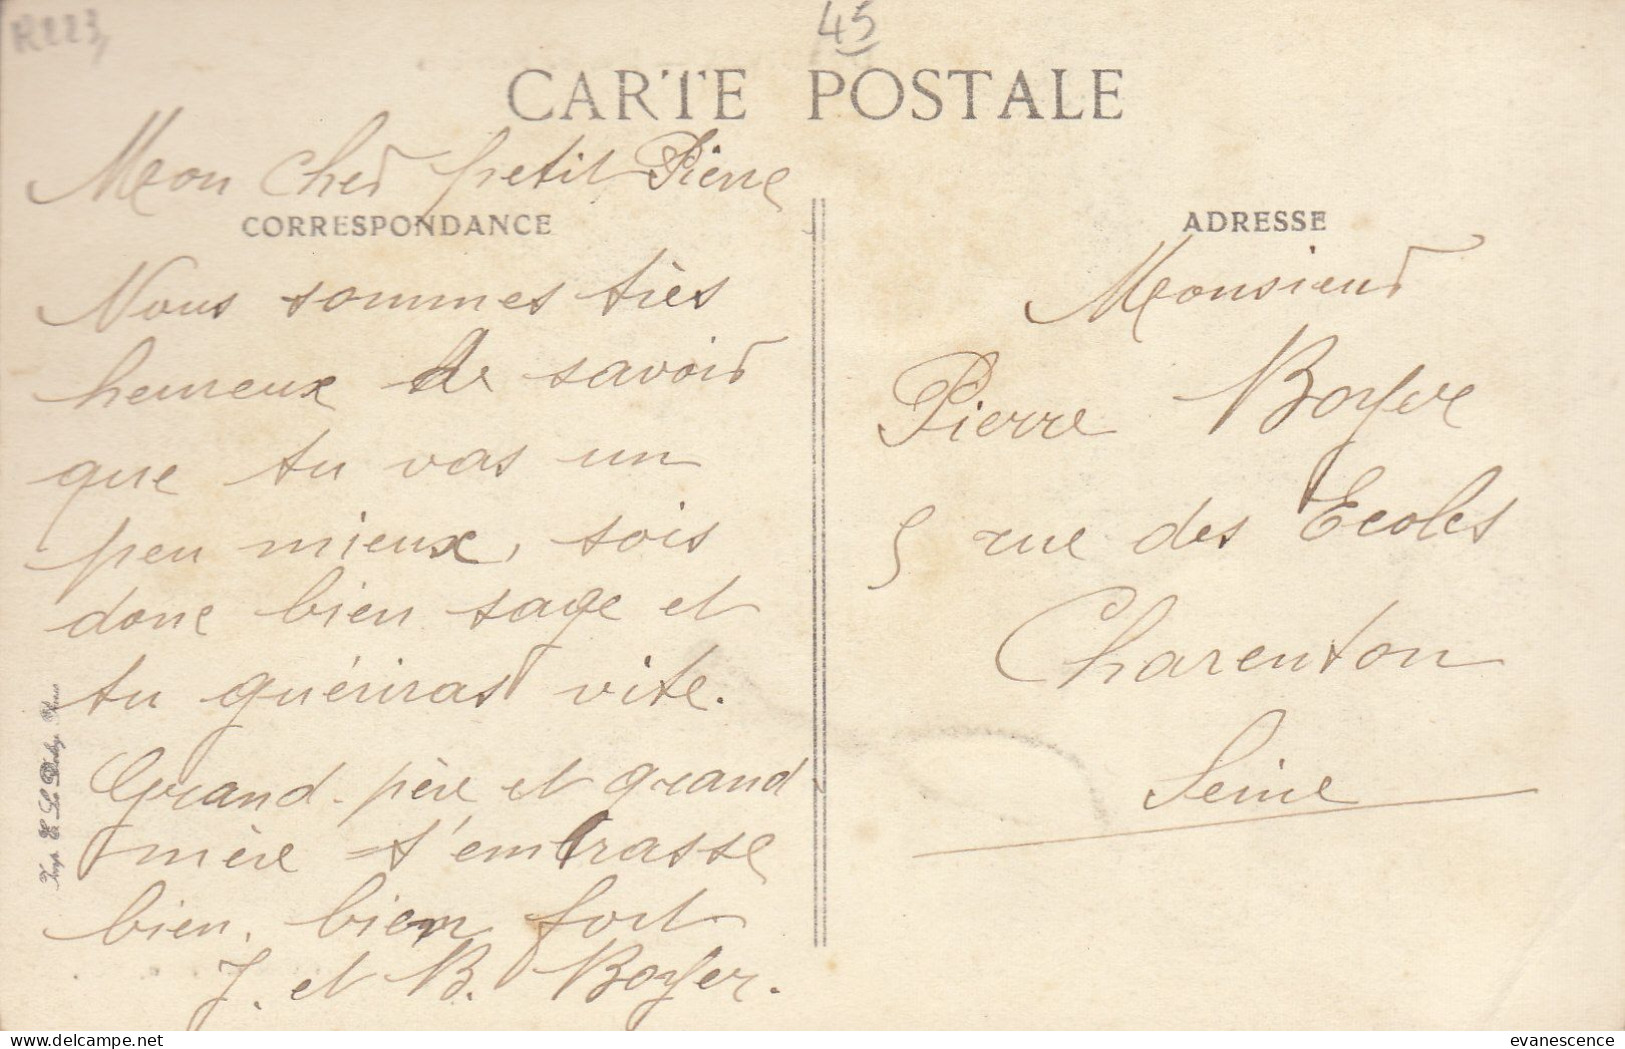 45
CARTE POSTALE
Mon cher petit Pierre
CORRESPONDANCE
Nous sommes très
heureux de savoir
que tu vas un
peu mieux, sois
donc bien sage et
tu guériras vite.
Grand-père et grand
mère t'embrasse
bien, bien fort
J. et B. Boyer.
ADRESSE
Monsieur
Pierre Boyer
5 rue des Ecoles
Charenton
Seine
Imp. E. Le
delcampe.net
evanescence